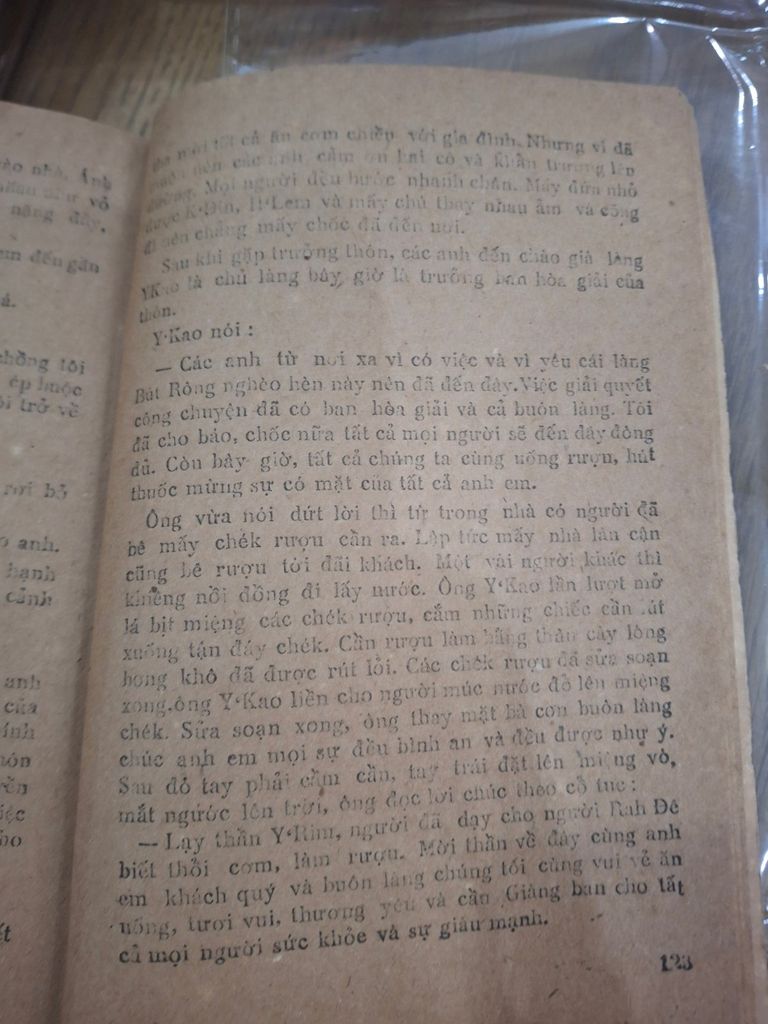 ào nhà. Ánh
vỏ
nặng đây.
em đến gần
á.
chồng tôi
ép buộc
ôi trở về
rơi bỏ
o anh.
hạnh
cảnh
anh
của
ính
uôn
yền
iệc
ho
ất
tất cả ăn cơm chiều với gia đình. Nhưng vì đã
nên các anh cảm ơn hai cô và khẩn trương lên
đường. Mọi người đều bước nhanh chân. Mấy đứa nhỏ
được K'Đin, H'Lem và mấy chú thay nhau ẵm và cõng
đi nên chẳng mấy chốc đã đến nơi.
Sau khi gặp trưởng thôn, các anh đến chào già làng
YKao là chủ làng bây giờ là trưởng ban hòa giải của
thôn.
Y'Kao nói :
— Các anh từ nơi xa vì có việc và vì yêu cái làng
Bút Rông nghèo hèn này nên đã đến đây. Việc giải quyết
công chuyện đã có ban hòa giải và cả buôn làng. Tôi
đã cho báo, chốc nữa tất cả mọi người sẽ đến đây đông
đủ. Còn bây giờ, tất cả chúng ta cùng uống rượu, hút
thuốc mừng sự có mặt của tất cả anh em.
Ông vừa nói dứt lời thì từ trong nhà có người đã
bê mấy chék rượu cần ra. Lập tức mấy nhà lân cận
cũng bê rượu tới đãi khách. Một vài người khác thì
khiêng nồi đồng đi lấy nước. Ông Y'Kao lần lượt mở
lá bịt miệng các chék rượu, cắm những chiếc cần hút
xuống tận đáy chék. Cần rượu làm bằng thân cây lông
bong khô đã được rút lõi. Các chék rượu đã sửa soạn
xong. ông Y'Kao liền cho người múc nước đổ lên miệng
chék. Sửa soạn xong, ông thay mặt bà con buôn làng
chúc anh em mọi sự đều bình an và đều được như ý.
Sau đó tay phải cầm cần, tay trái đặt lên miệng vò,
mắt ngước lên trời, ông đọc lời chúc theo cổ tục :
— Lạy thần Y'Rim, người đã dạy cho người Rah Đê
biết thổi cơm, làm rượu. Mời thần về đây cùng anh
em khách quý và buôn làng chúng tôi cùng vui vẻ ăn
uống, tươi vui, thương yêu và cần Giàng ban cho tất
cả mọi người sức khỏe và sự giàu mạnh.
123